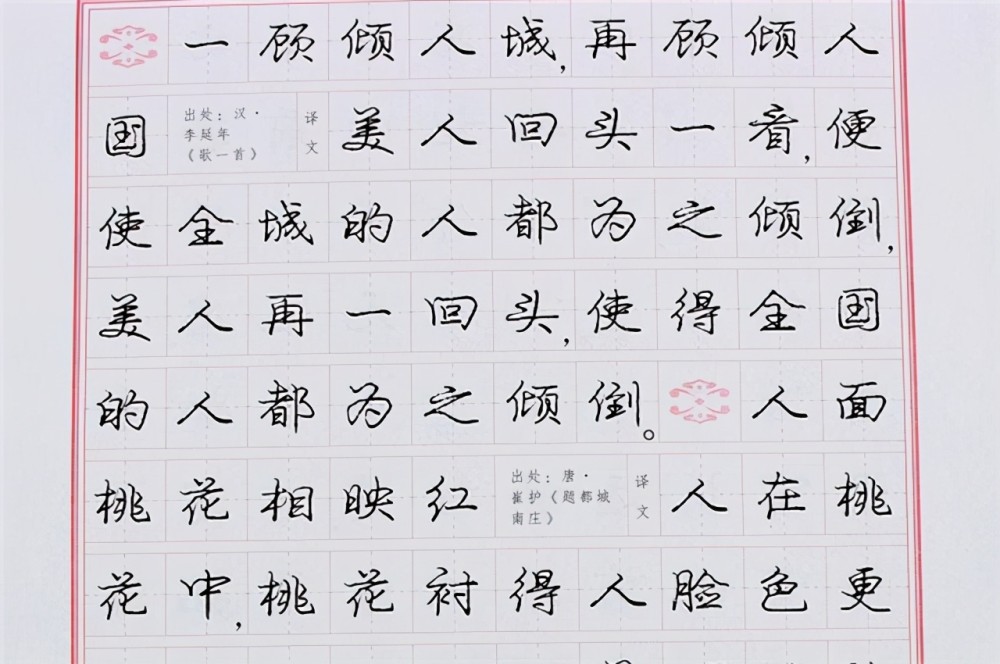 一顾倾人城，再顾倾人
国 出处：汉·李延年《歌一首》 译文 美人回头一音，便
使全城的人都为之倾倒，
美人再一回头，使得全国
的人都为之倾倒。人面
桃花相映红 出处：唐·崔护《题都城南庄》 译文 人在桃
花中，桃花衬得人脸色更